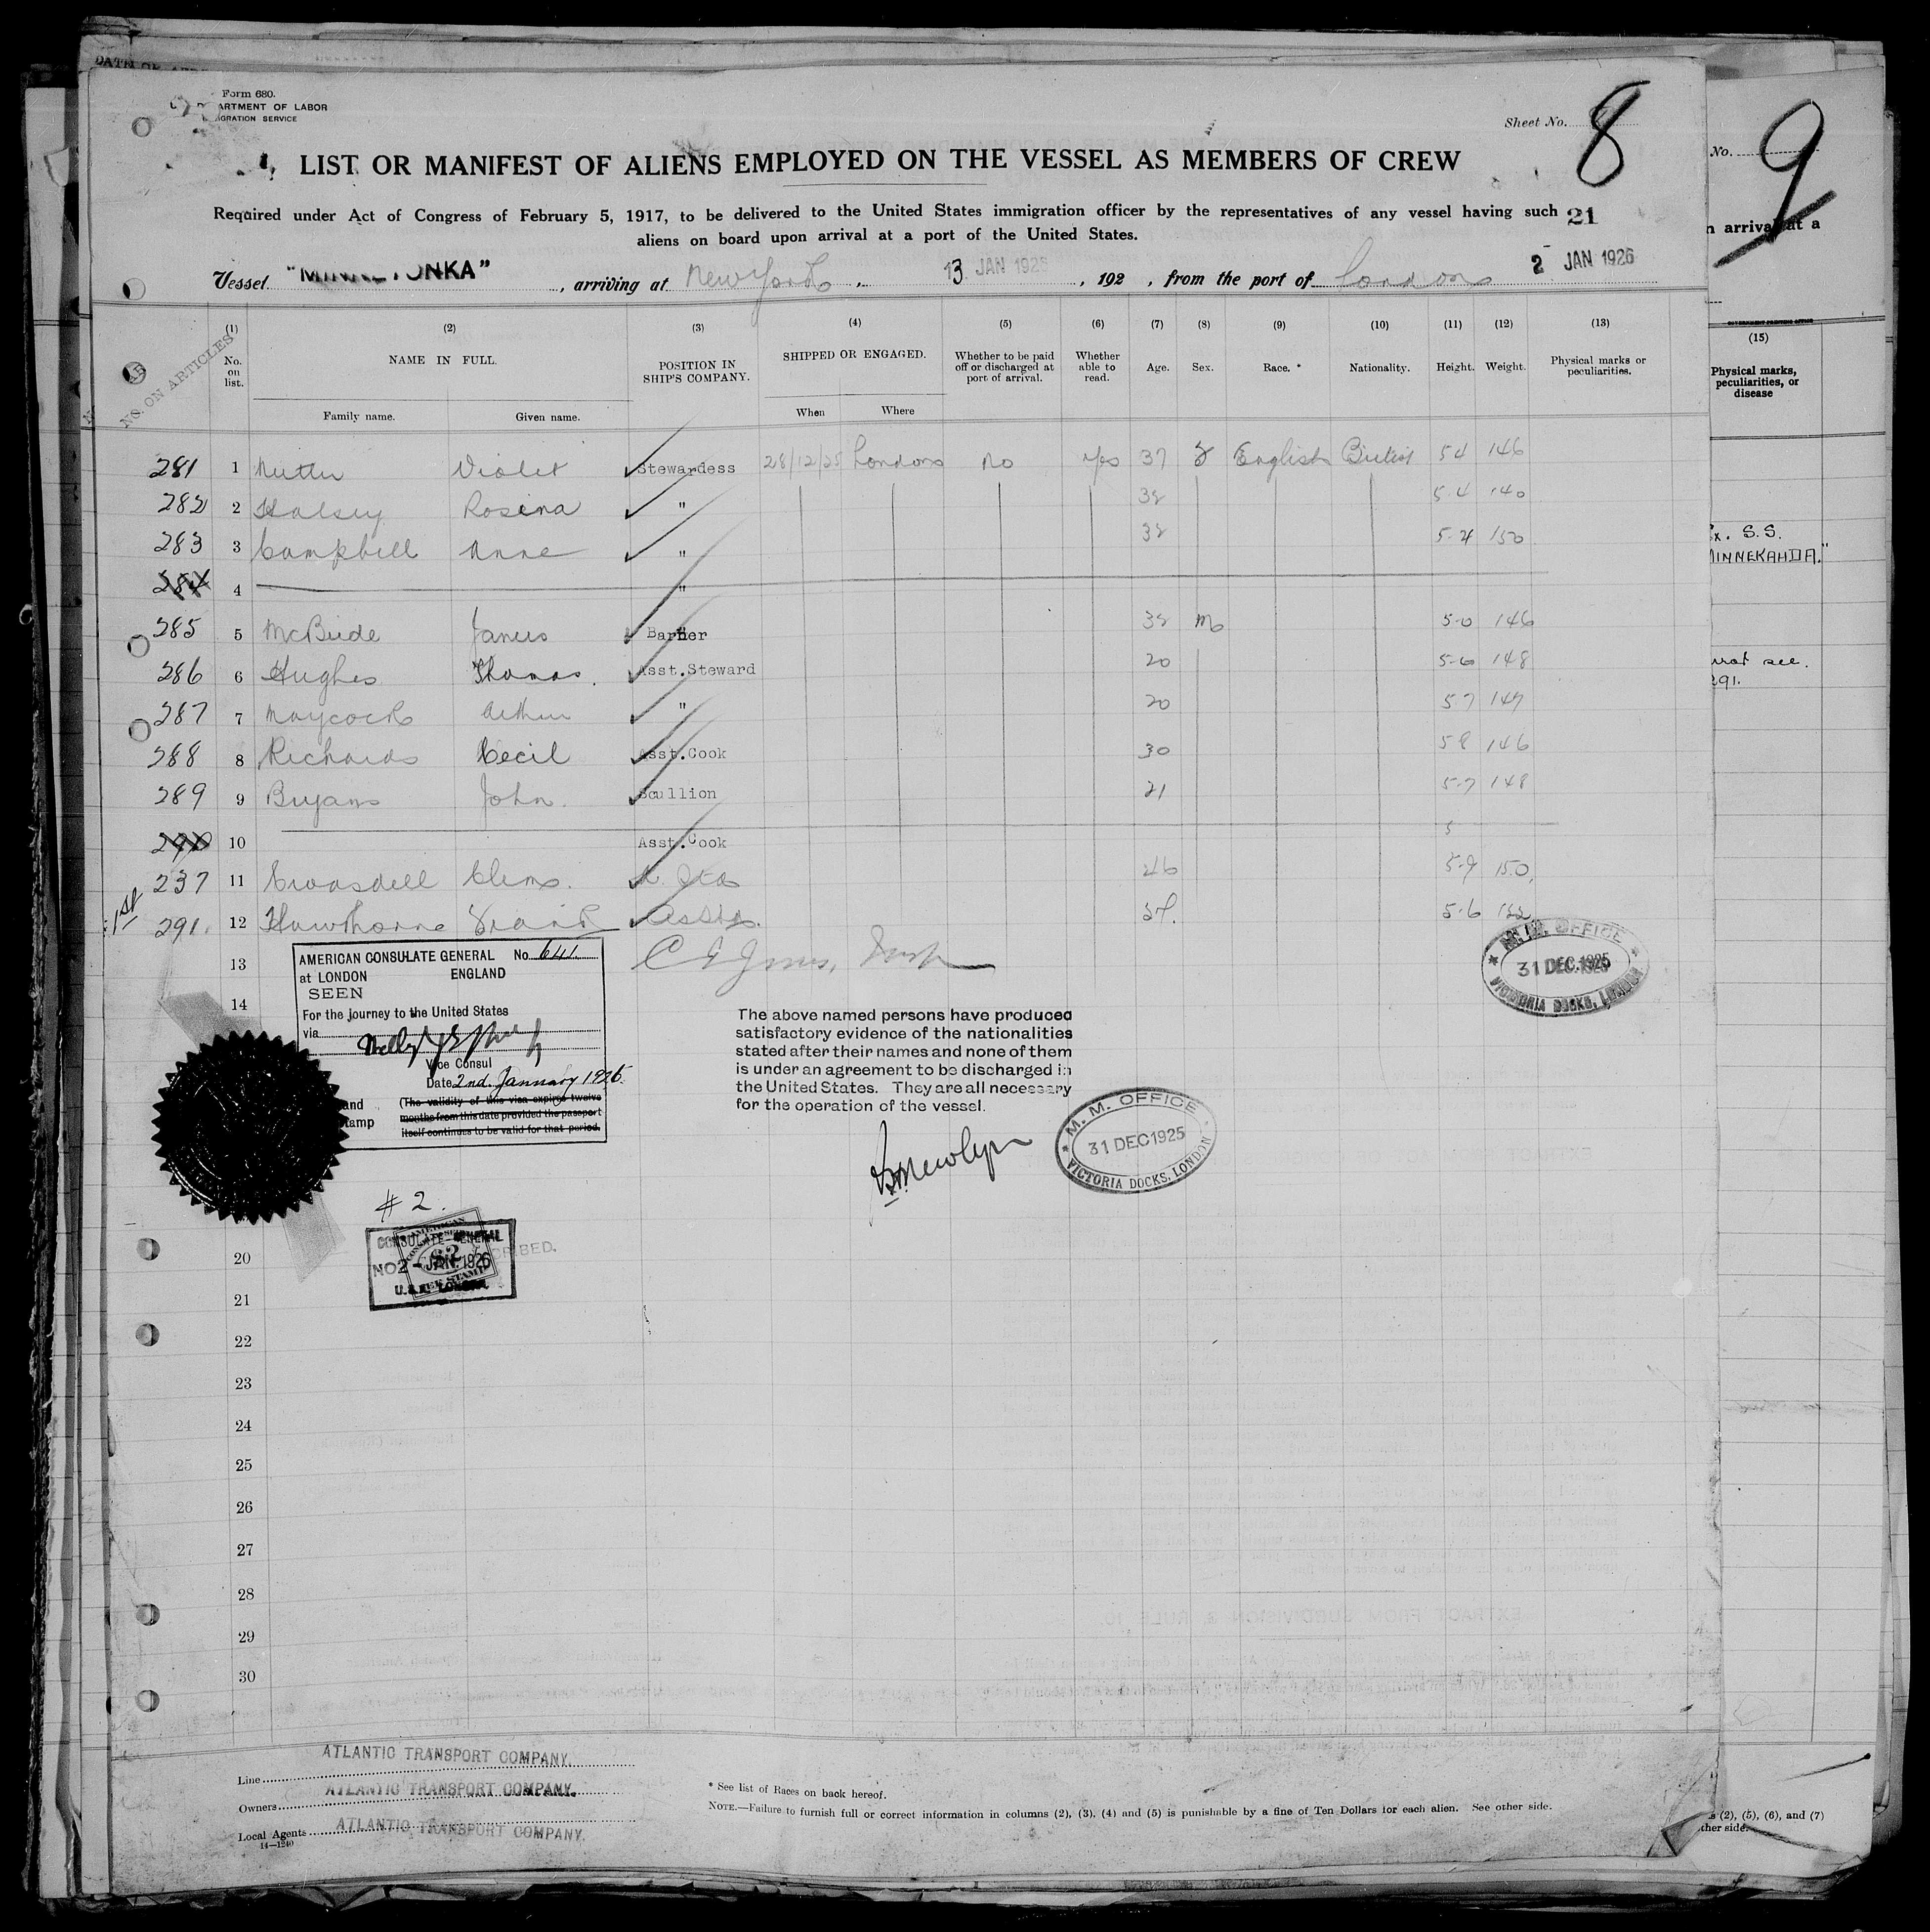 Form 680.
ARTMENT OF LABOR
IGRATION SERVICE
Sheet No. 8
LIST OR MANIFEST OF ALIENS EMPLOYED ON THE VESSEL AS MEMBERS OF CREW
Required under Act of Congress of February 5, 1917, to be delivered to the United States immigration officer by the representatives of any vessel having such
aliens on board upon arrival at a port of the United States.
21
Vessel "MINNETONKA", arriving at New York, 13 JAN 1926, 192 , from the port of London 2 JAN 1926
NO. ON ARTICLES
(1) (2) (3) (4) (5) (6) (7) (8) (9) (10) (11) (12) (13)
No. on list. NAME IN FULL. POSITION IN SHIP'S COMPANY. SHIPPED OR ENGAGED. Whether to be paid off or discharged at port of arrival. Whether able to read. Age. Sex. Race. * Nationality. Height. Weight. Physical marks or peculiarities.
Family name. Given name. When Where
281 1 Violet Stewardess 28/12/25 London No Yes 37 English British 5 4 146
282 2 Halsey Rosina " 5-4 140
283 3 Campbell Anne " 5-4 150
284 4 "
285 5 McBride James Barber M 5-0 146
286 6 Hughes Thomas. Asst.Steward 20 5-6 148
287 7 Maycock Arthur " 20 5 7 147
288 8 Richards Cecil Asst.Cook 30 5 8 146
289 9 Bryans John. Scullion 21 5-7 148
290 10 Asst.Cook 5
237 11 Croasdell Clem. 46 5-9 150
1st 291. 12 Hawthorne Frank 5-6
13
14
AMERICAN CONSULATE GENERAL No. 641.
at LONDON ENGLAND
SEEN
For the journey to the United States
via
Vice Consul
Date 2nd. January 1926.
and
(The validity of this visa expires twelve
months from this date provided the passport
tamp
itself continues to be valid for that period.
M. M. OFFICE
31 DEC.1925
VICTORIA DOCKS, LONDON
The above named persons have produced
satisfactory evidence of the nationalities
stated after their names and none of them
is under an agreement to be discharged in
the United States. They are all necessary
for the operation of the vessel.
M. M. OFFICE
31 DEC 1925
VICTORIA DOCKS, LONDON
# 2.
CONSULATE-GENERAL
2-JAN.1926
U.S.A. LONDON
20
21
22
23
24
25
26
27
28
29
30
Line ATLANTIC TRANSPORT COMPANY.
Owners ATLANTIC TRANSPORT COMPANY.
Local Agents ATLANTIC TRANSPORT COMPANY.
14—1240
* See list of Races on back hereof.
NOTE.—Failure to furnish full or correct information in columns (2), (3), (4) and (5) is punishable by a fine of Ten Dollars for each alien. See other side.
No. 9
n arrival at a
(15)
Physical marks,
peculiarities, or
disease
Ex. S.S.
MINNEKAHDA."
see.
291.
(2), (5), (6), and (7)
ther side.